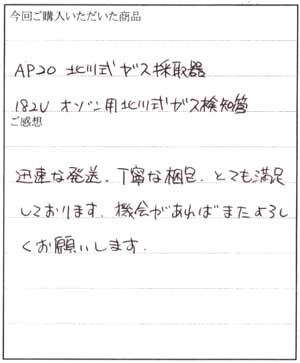 今回ご購入いただいた商品
AP20 北川式ガス採取器
182U オゾン用北川式ガス検知管
ご感想
迅速な発送、丁寧な梱包、とても満足
しております。機会があればまたよろし
くお願いします。